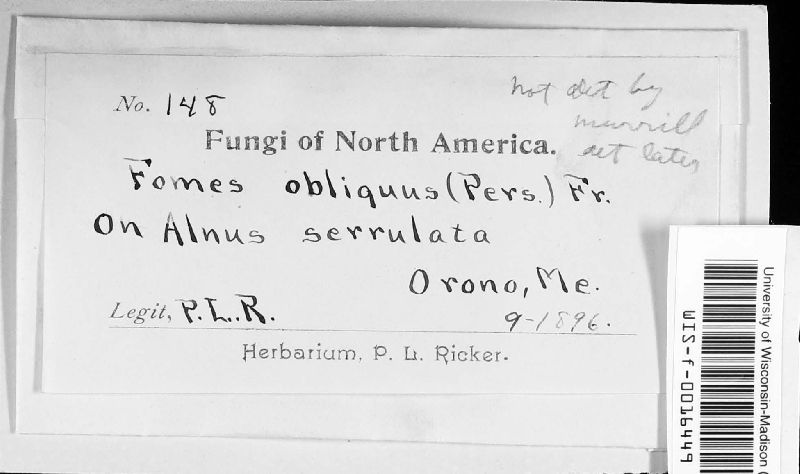 No. 148
not det by
murrill
det later
Fungi of North America.
Fomes obliquus (Pers.) Fr.
On Alnus serrulata
Orono, Me.
Legit, P. L. R.
9-1896.
Herbarium, P. L. Ricker.
University of Wisconsin-Madison
WIS-f-0016449